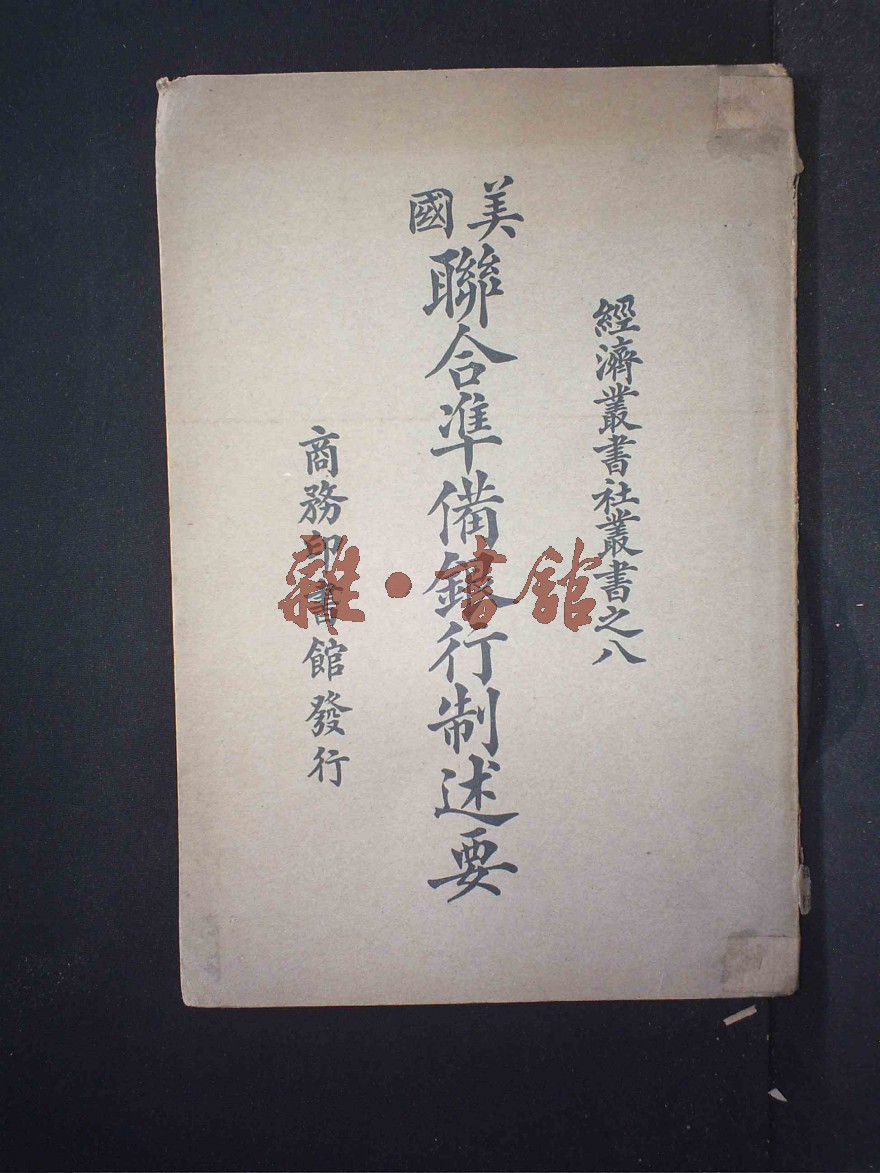 經濟叢書社叢書之八
美國
聯合準備銀行制述要
商務印書館發行
雜·書館